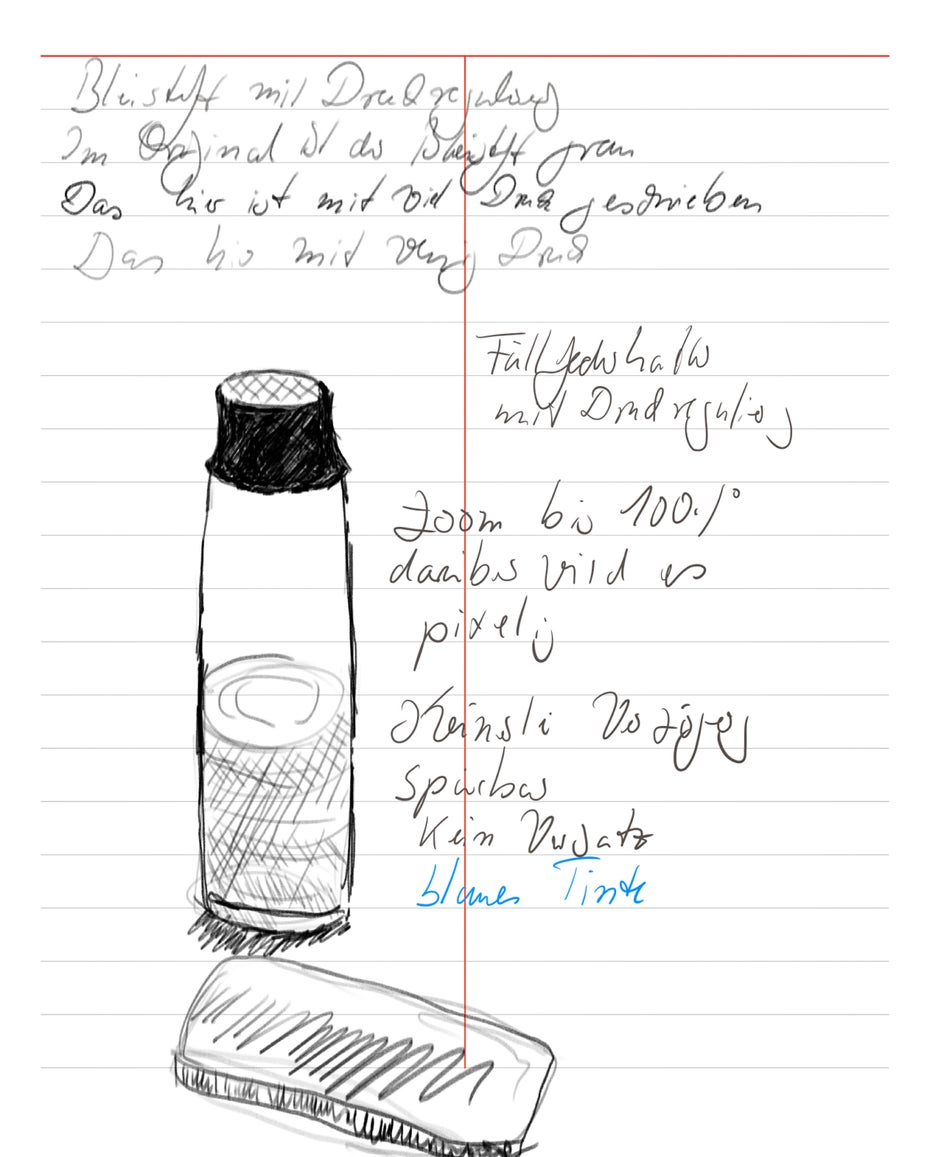 Bleistift mit Druckregulierung
Im Original ist der Bleistift grau
Das hier ist mit viel Druck geschrieben
Das hier mit wenig Druck
Füllfederhalter
mit Druckregulierung
Zoom bis 100%
darüber wird es
pixelig
Keinerlei Verzögerung
spürbar
Kein Versatz
blaue Tinte